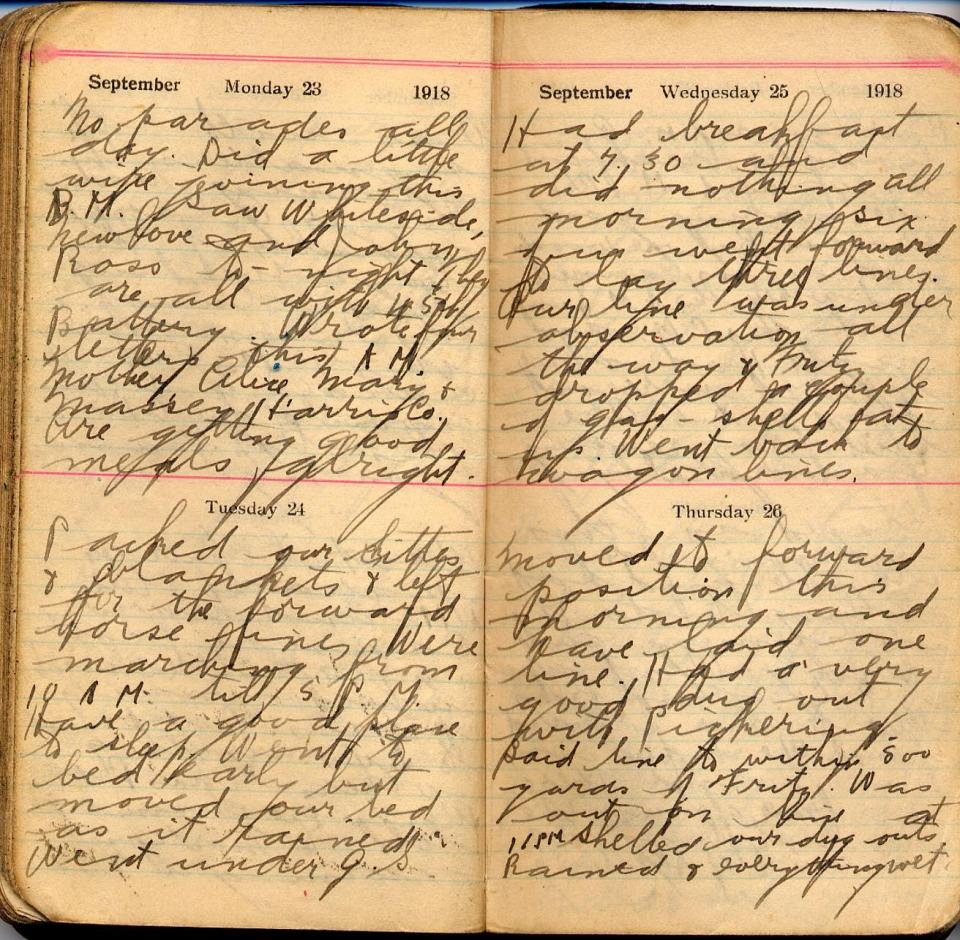 September Monday 23 1918
No parades all
day. Did a little
wire joining this
P.M. Saw Whiteside,
Newlove and John
Ross to-night they
are all with 45th
Battery. Wrote four
letters this A M.
Mother Alice Mary &
Massey Harris Co.
Are getting good
meals alright.
Tuesday 24
Packed our kitties
& blankets & left
for the forward
horse lines. Were
marching from
10 A M. till 5 P M.
Have a good place
to sleep. Went to
bed early but
moved our bed
as it rained
Went under G.S.
September Wednesday 25 1918
Had breakfast
at 7.30 and
did nothing all
morning, six
men went forward
to lay three lines.
Our line was under
observation all
the way & Fritz
dropped a couple
of gas-shells at
us. Went back to
wagon lines.
Thursday 26
Moved to forward
position this
morning and
have laid one
line. Had a very
good dug out
with Pickering
Laid line to within 500
yards of Fritz. Was
out on line at
11 PM shelled our dug outs
Rained & everything wet